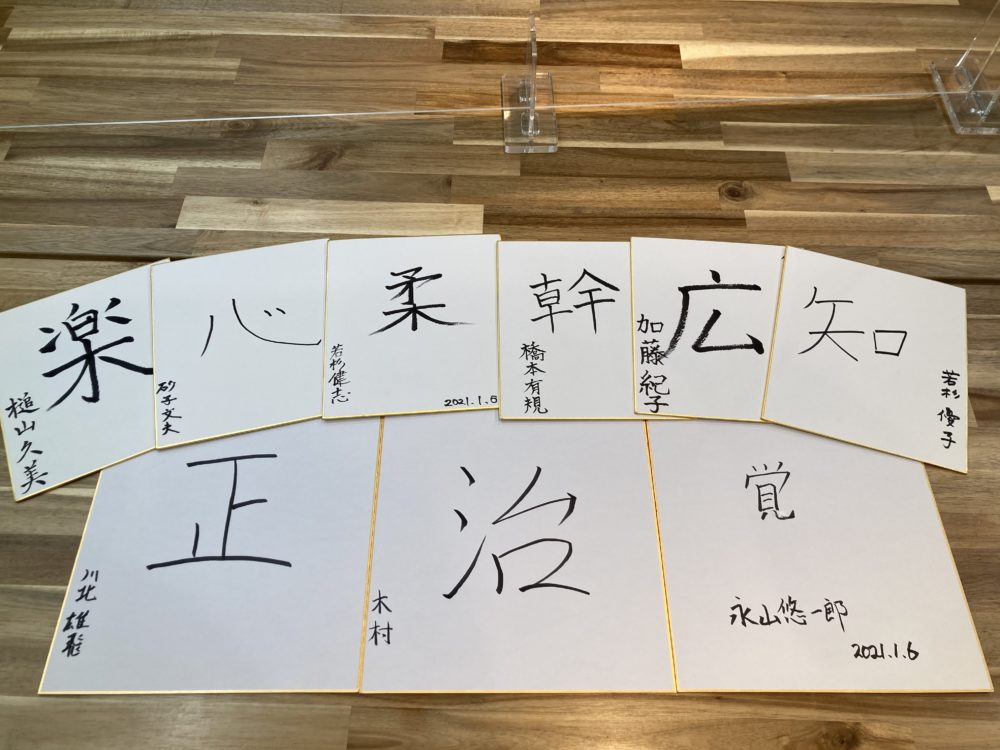 楽
槌山久美
心
砂子文夫
柔
若杉健志
2021.1.6
幹
橋本有規
広
加藤紀子
知
若杉優子
正
川北雄龍
治
木村
覚
永山悠一郎
2021.1.6